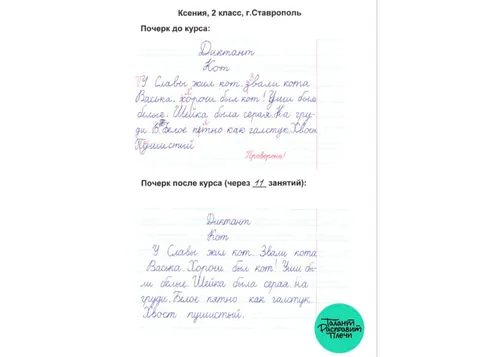 Ксения, 2 класс, г.Ставрополь
Почерк до курса:
Диктант
Кот
У Славы жил кот. Звали кота
Васька. Хорош был кот! Уши были
белые. Шейка была серая. На гру-
ди. Белое пятно как галстук. Хвост
Пушистый
Проверено!
Почерк после курса (через 11 занятий):
Диктант
Кот
У Славы жил кот. Звали кота
Васька. Хорош был кот! Уши бы-
ли белые. Шейка была серая. на
груди. Белое пятно как галстук.
Хвост пушистый.
Талант
Расправит
Плечи